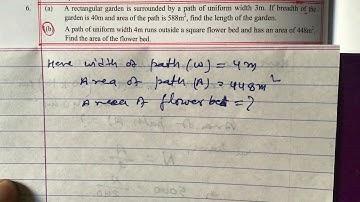 6. (a) A rectangular garden is surrounded by a path of uniform width 3m. If breadth of the
garden is 40m and area of the path is 588m², find the length of the garden.
(b) A path of uniform width 4m runs outside a square flower bed and has an area of 448m².
Find the area of the flower bed.
Here width of path (w) = 4m
Area of path (A) = 448m²
Area of flower bed = ?